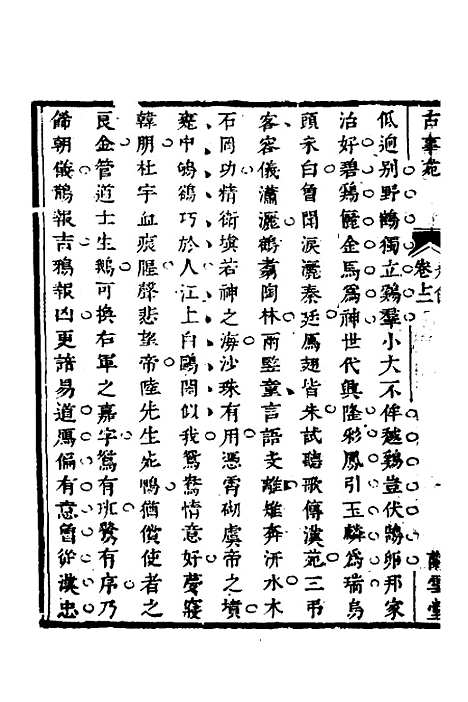 古事苑
卷上二
蘭雪堂
低迴别野鶴獨立鷄羣小大不侔越鷄豈伏鵠卵邦家
治好碧鷄儷金馬為神世代興隆彩鳳引玉麟為瑞烏
頭未白曾聞淚灑秦廷鴈翅皆朱試聽歌傳漢苑三弔
客容儀瀟灑鶴翥陶林兩豎童言語支離雉奔沂水木
石同功精衛填若神之海沙珠有用憑霄砌虞帝之墳
甕中鴝鵒巧於人江上白鷗閒似我鴛鴦情意好夢寢
韓朋杜宇血痕腥聲悲望帝陸先生死鴨猶償使者之
良金管道士生鵝可換右軍之嘉字鴛有班鷺有序乃
飾朝儀鵲報吉鴉報凶更諳易道鴈偏有意曾從漢忠